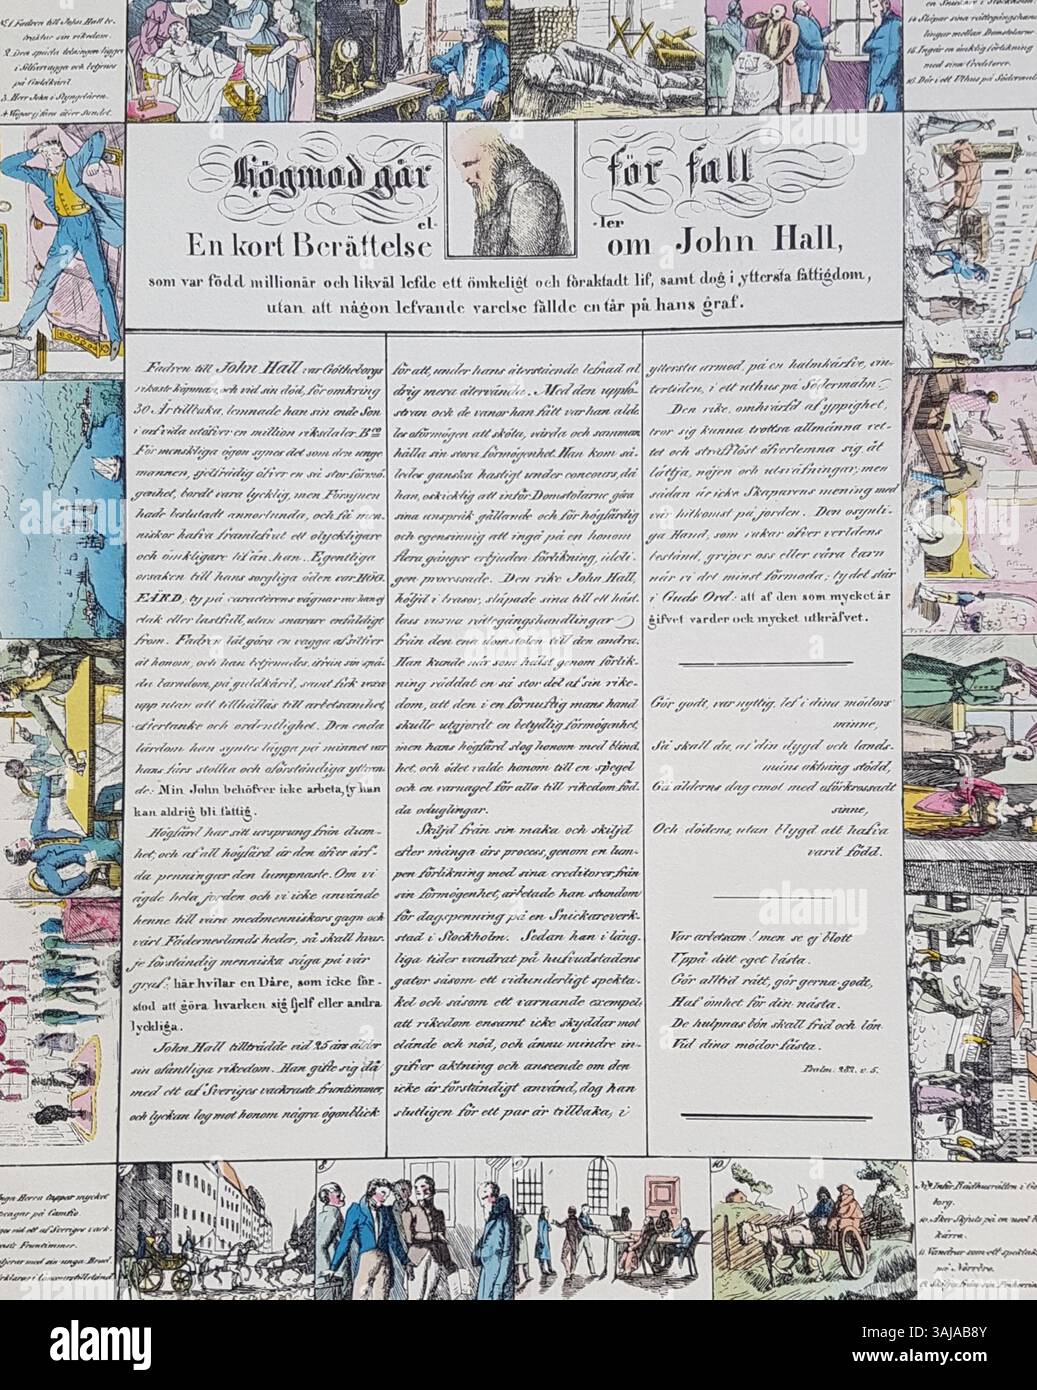 N:1 Fadren till John Hall be-
traktar sin rikedom.
2. Dess spada telning ligger
i Silfvervagga och betjenes
på Guldkäril
3. Herr John i Syngelåren.
4. Vaparyckare öfver Sundet.
en Snickare i Stockholm.
14. Släpar sina rättegångshand
lingar mellan Domstolarne
15. Ingår en ömklig förlikning
med sina Creditorer.
16. Dör i ett Uthus på Södermalm
Högmod går för fall
el- -ler
En kort Berättelse om John Hall,
som var född millionär och likväl lefde ett ömkeligt och föraktadt lif, samt dog i yttersta fattigdom,
utan att någon lefvande varelse fällde en tår på hans graf.
Fadren till John Hall var Götheborgs
rikaste köpman, och vid sin död, för omkring
30. År tillbaka, lemnade han sin enda Son
i arf vida utöfver en million riksdaler B.co
För menskliga ögon synes det som den unge
mannen, sjelfrådig öfver en så stor förmö-
genhet, bordt vara lycklig, men Försynen
hade beslutadt annorlunda, och få men-
niskor hafva framlefvat ett olyckligare
och ömkligare lif än han. Egentliga
orsaken till hans sorgliga öden var HÖG-
FÄRD; ty på caracterens vägnar var han ej
elak eller lastfull, utan snarare enfaldigt
from. Fadren lät göra en vagga af silfver
åt honom, och han betjenades, ifrån sin spä-
da barndom, på guldkäril, samt fick växa
upp utan att tillhållas till arbetsamhet,
eftertanke och ordentlighet. Den enda
lärdom han syntes lägga på minnet var
hans fars stolta och oförståndiga yttran-
de: Min John behöfver icke arbeta, ty han
kan aldrig bli fattig.
Högfärd har sitt ursprung från dum-
het, och af all högfärd är den öfver ärf-
da penningar den lumpnaste. Om vi
ägde hela jorden och vi icke använde
henne till våra medmenniskors gagn och
vårt Fäderneslands heder, så skall hvar-
je förståndig menniska säga på vår
graf: här hvilar en Dåre, som icke för-
stod att göra hvarken sig sjelf eller andra
lyckliga.
John Hall tillträdde vid 25 års ålder
sin ofantliga rikedom. Han gifte sig då
med ett af Sveriges vackraste fruntimmer,
och lyckan log mot honom några ögonblick
för att, under hans återstående lefnad al
drig mera återvända. Med den uppfo-
stran och de vanor han fått var han alde-
les oförmögen att sköta, vårda och samman
hålla sin stora förmögenhet. Han kom så-
ledes ganska hastigt under concours, då
han, oskicklig att inför Domstolarne göra
sina anspråk gällande och för högfärdig
och egensinnig att ingå på en honom
flera gånger erbjuden förlikning, ideli-
gen processade. Den rike John Hall,
höljd i trasor, släpade sina till ett häst-
lass vuxna rättegångshandlingar
från den ena domstolen till den andra.
Han kunde när som hälst genom förlik-
ning räddat en så stor del af sin rike-
dom, att den i en förnuftig mans hand
skulle utgjordt en betydlig förmögenhet,
men hans högfärd slog honom med blind
het, och ödet valde honom till en spegel
och en varnagel för alla till rikedom föd-
da oduglingar.
Skiljd från sin maka och skiljd
efter många års process, genom en lum-
pen förlikning med sina creditorer, från
sin förmögenhet, arbetade han stundom
för dagspenning på en Snickareverk-
stad i Stockholm. Sedan han i lång-
liga tider vandrat på hufvudstadens
gator såsom ett vidunderligt spekta-
kel och såsom ett varnande exempel,
att rikedom ensamt icke skyddar mot
elände och nöd, och ännu mindre in-
gifver aktning och anseende om den
icke är förståndigt använd, dog han
slutligen för ett par år tillbaka, i
yttersta armod, på en halmkärfve, vin-
tertiden, i ett uthus på Södermalm.
Den rike, omhvärfd af yppighet,
tror sig kunna trottsa allmänna vet-
tet och strafflöst öfverlemna sig åt
lättja, nöjen och utsväfningar; men
sådan är icke Skaparens mening med
vår hitkomst på jorden. Den osynli-
ga Hand, som vakar öfver verldens
bestånd, griper oss eller våra barn
när vi det minst förmoda; ty det står
i Guds Ord: att af den som mycket är
gifvet varder ock mycket utkräfvet.
Gör godt, var nyttig, lef i dina mödors
minne,
Så skall du, af din dygd och lands-
mäns aktning stödd,
Gå ålderns dag emot med oförkrossadt
sinne,
Och dödens, utan blygd att hafva
varit född.
Var arbetsam! men se ej blott
Uppå ditt eget bästa.
Gör alltid rätt, gör gerna godt,
Haf ömhet för din nästa.
De hulpnas bön skall frid och lön
Vid dina mödor fästa.
Psalm. 282. v. 5.
8
9.
10.
unga Herrn tappar mycket
penngar på Caffe
med ett af Sveriges vack-
raste Fruntimmer.
N:9 Inför Rådhusrätten i Gö-
borg.
10. Åker Skjuts på en två h
kärra.
11. Vandrar som ett spektak
på Norrbro.
alamy
Image ID: 3AJAB8Y
www.alamy.com